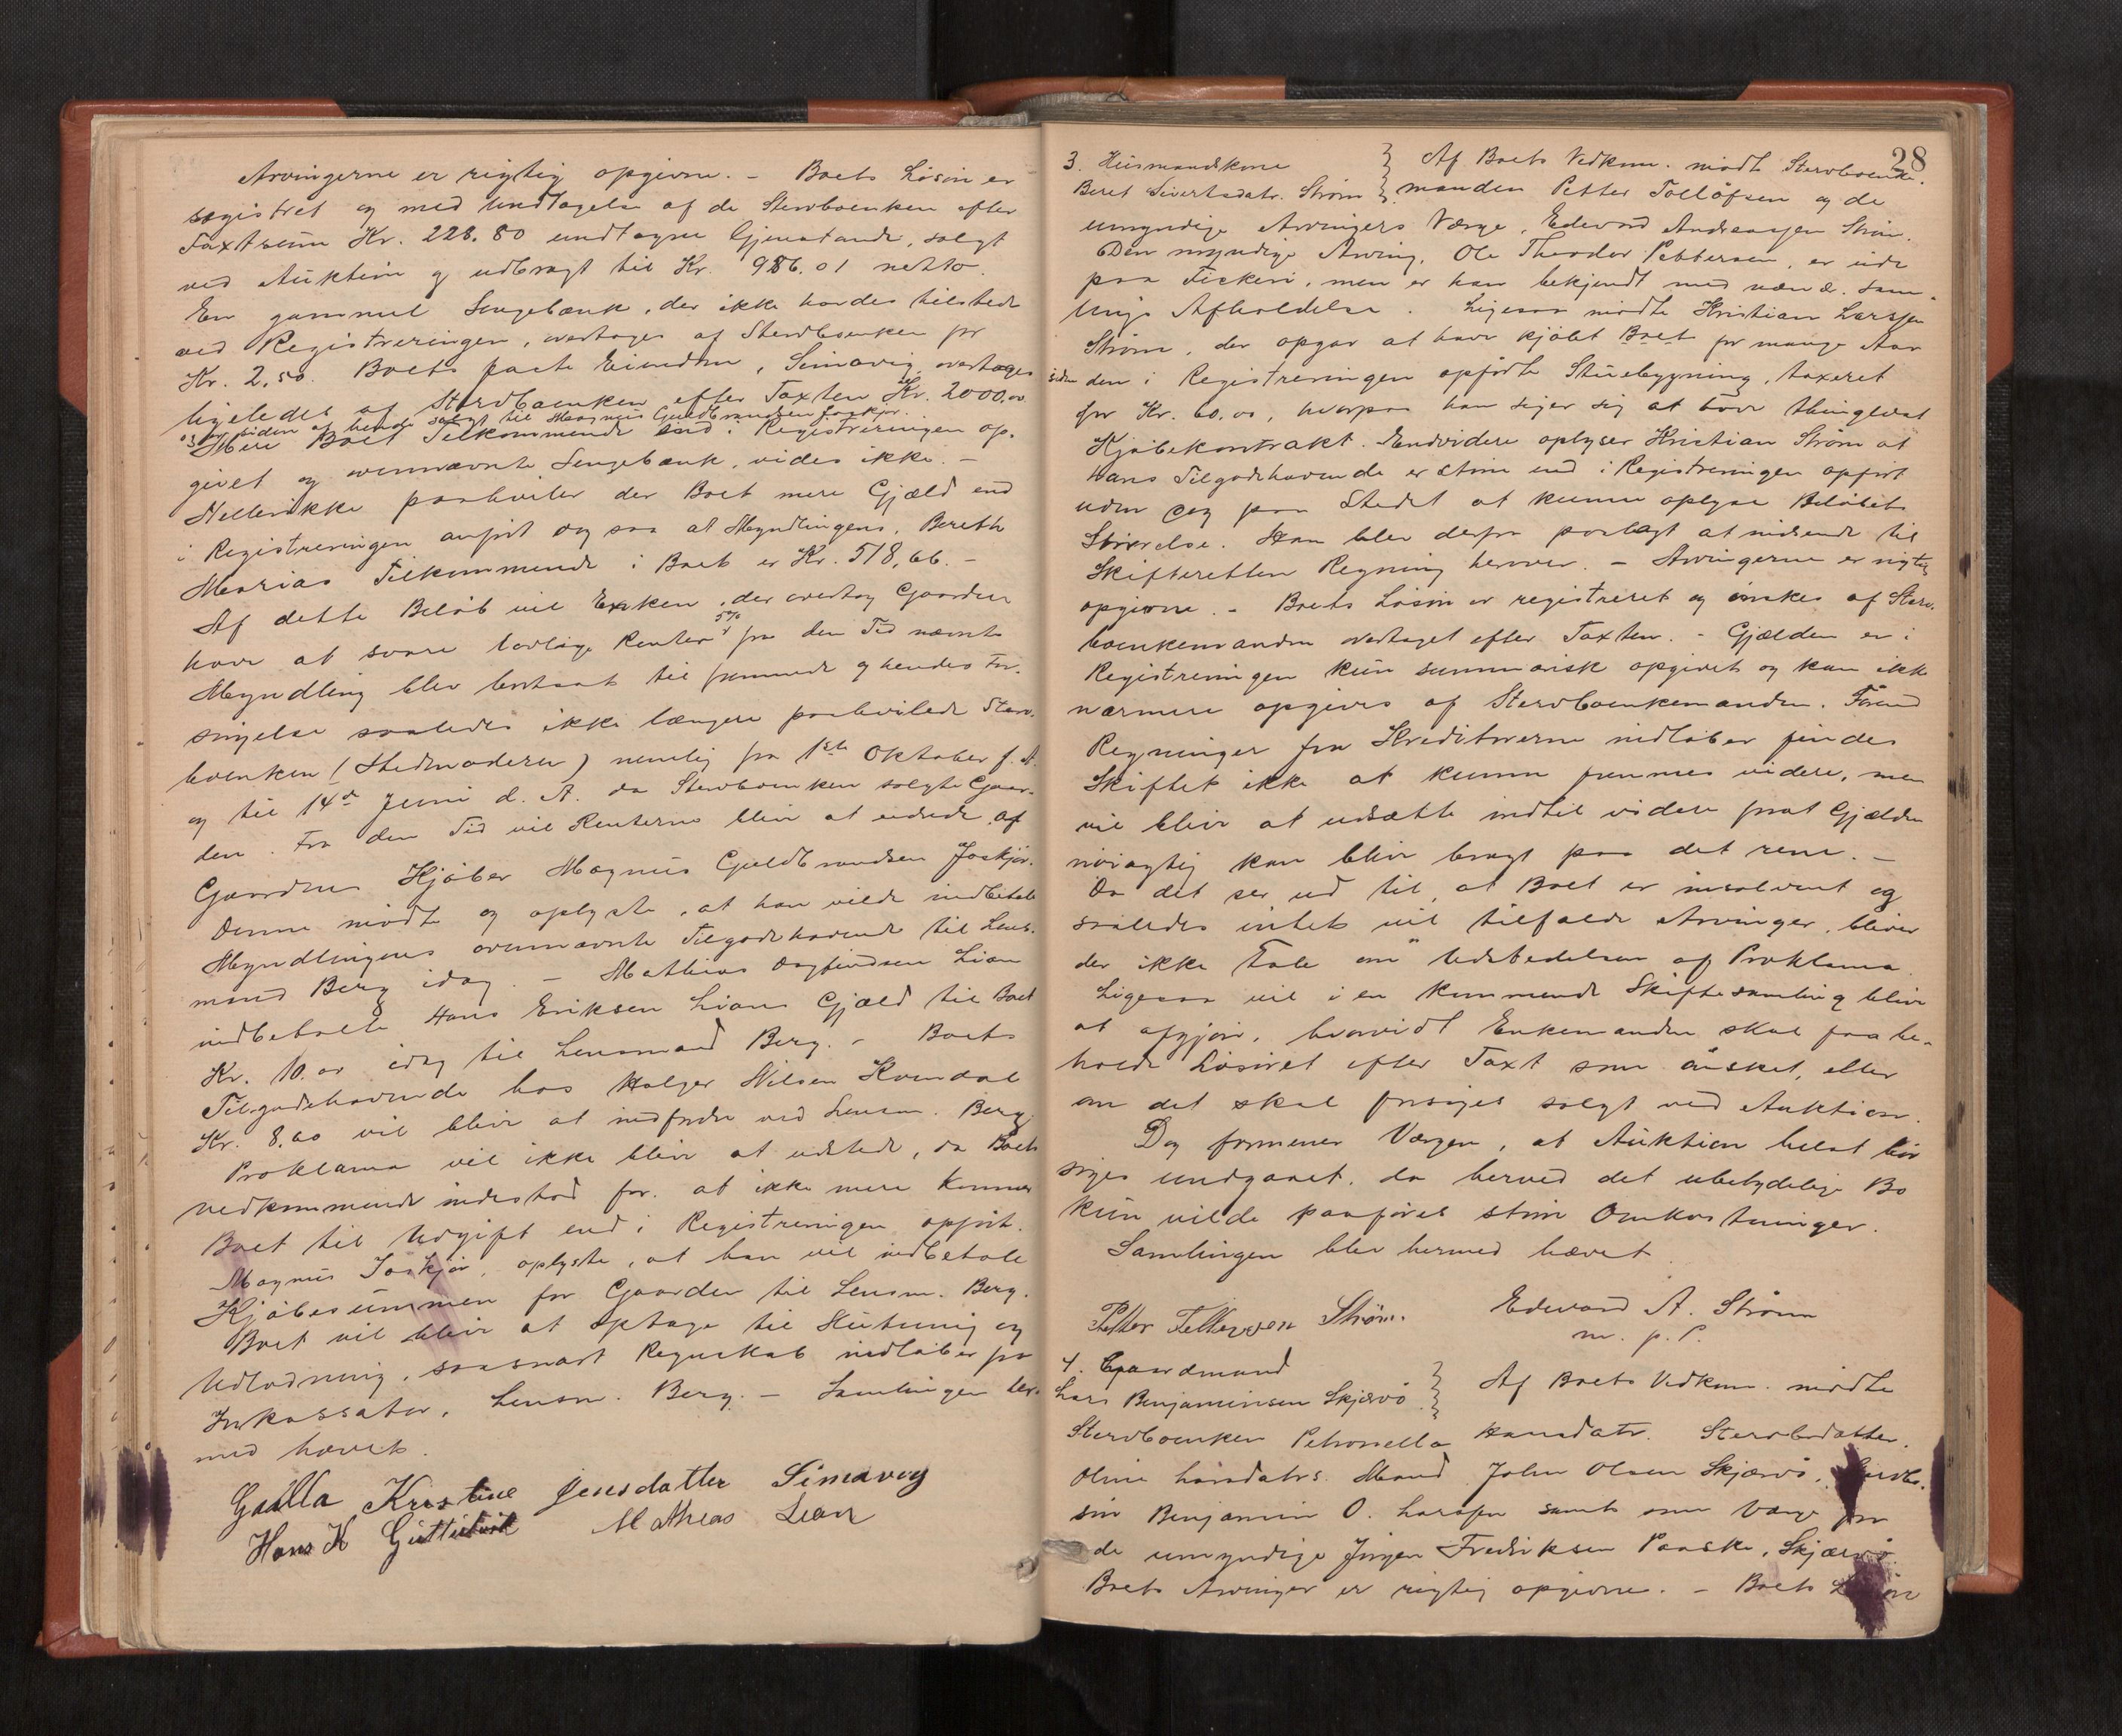 Arvingerne er rigtig opgivne. - Boets Løsøre er
registret og med Undtagelse af de Stervboenken efter
Taxtsum Kr. 228.80 undtagne Gjenstande, solgt
ved Auktion og udbragt til Kr. 986.01 netto.
En gammel Sengebænk, der ikke havdes tilstede
ved Registreringen, overtages af Stervboenken for
Kr. 2,50. Boets faste Eiendom, Simavig overtages
ligeledes af Stervboenken efter Taxten Kr. 2000.00
og er siden af hende solgt til Magnus Guldbrandsen Joskjør.
Mere Boet Tilkommende end i Registreringen op-
givet og ovennævnte Sengebænk, vides ikke. -
Hellerikke paahviler der Boet mere Gjæld end
i Registreringen anført og saa at Myndlingens, Bereth
Marias Tilkommende i Boet er Kr. 518,66. -
Af dette Beløb vil Enken, der overtog Gaarden
have at svare lovlige Renter 5% fra den Tid nævnte
Myndling blev bortsat til fremmede og hendes For-
sørgelse saaledes ikke længere paahvilede Sterv-
boenken (Stedmoderen) nemlig fra 1ste Oktober f. A.
og til 14de Juni d. A. da Stervboenken solgte Gaar-
den. Fra den Tid vil Renterne blive at udrede af
Gaardens Kjøber Magnus Guldbrandsen Joskjør.
Denne mødte og oplyste, at han vilde indbetale
Myndlingens ovennævnte Tilgodehavende til Lens-
mand Berg idag. - Mathias Dagfindsen Lian
indbetalte Hans Eriksen Lians Gjæld til Boet
Kr. 10.00 idag til Lensmand Berg. - Boets
Tilgodehavende hos Holger Nilsen Korndal
Kr. 8.60 vil blive at indfordre ved Lensm. Berg.
Proklama vil ikke blive at udstede, da Boets
vedkommende indestod for. at ikke mere kommer
Boet til Udgift end i Registreringen opført.
Magnus Joskjør, oplyste, at han vil indbetale
Kjøbesummen for Gaarden til Lensm. Berg.
Boet vil blive at optage til Slutning og
Udlodning, saasnart Regnskab indløber fra
Inkassator, Lensm. Berg. - Samlingen her-
med hævet.
Gunilla Kristine Jensdatter Simavig
Hans K Mathias Lian
28
3. Husmandskone } Af Boets Vedkom. mødte Stervboenke-
Beret Sivertsdatr. Strøm } manden Petter Tolløfsen og de
umyndige Arvingers Værge, Edevard Andreassen Strøm.
Den myndige Arving, Ole Theodor Pettersen, er ude
paa Fiskeri, men er han bekjendt med nærv. Sam-
lings Afholdelse. Ligesaa mødte Kristian Larssen
Strøm, der opgav at have kjøbt Boet for mange Aar
siden den i Registreringen opførte Stuebygning, taxeret
for Kr. 60.00, hvorpaa han siger sig at have thinglæst
Kjøbekontrakt. Endvidere oplyser Kristian Strøm at
Hans Tilgodehavende er større end i Registreringen opført
uden dog paa Stedet at kunne oplyse Beløbets
Størrelse. Han blev derfor paalagt at indsende til
Skifteretten Regning herover. - Arvingerne er rigtig
opgivne. - Boets Løsøre er registreret og ønskes af Sterv-
boenkemanden overtaget efter Taxten. - Gjælden er i
Registreringen kun summarisk opgivet og kan ikke
nærmere opgives af Stervboenkemanden. Førend
Regninger fra Kreditorerne indløber findes
Skiftet ikke at kunne fremmes videre, men
vil blive at udsætte indtil videre forat Gjælden
nøiagtig kan blive bragt paa det rene. -
Da det ser ud til, at Boet er insolvent og
saaledes intet vil tilfalde Arvinger, bliver
der ikke Tale om Udstedelsen af Proklama.
Ligesaa vil i en kommende Skiftesamling blive
at afgjøre, hvorvidt Enkemanden skal faa be-
holde Løsøret efter Taxt som ønsket, eller
om det skal forsøges solgt ved Auktion.
Dog formener Værgen, at Auktion helst bør
søges undgaaet, da herved det ubetydelige Bo
kun vilde paaføres større Omkostninger.
Samlingen blev hermed hævet.
Petter Strøm. Edevard A. Strøm
m. p. P.
4. Gaardmand } Af Boets Vedkom. mødte
Lars Benjaminsen Skjærvø }
Stervboenken Petronella Hansdatr. Stervbodatter.
Oline Larsdatrs. Mand John Olsen Skjærvø, Stervbo-
søn Benjamin O. Larssen samt som Værge for
de umyndige Jørgen Fredriksen Paaske, Skjærvø.
Boets Arvinger er rigtig opgivne. - Boets Løsøre